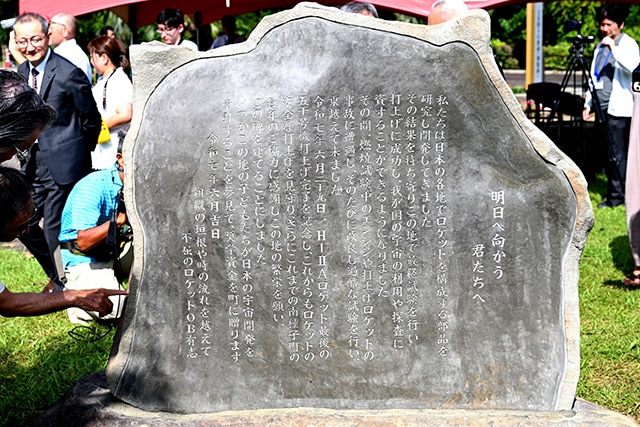 明日へ向かう
君たちへ
私たちは日本の各地でロケットを構成する部品を
研究し開発してきました
その結果を持ち寄りこの地で最終試験を行い
打上げに成功し、我が国の宇宙の利用や探査に
資することができるようになりました
その間、燃焼試験中のエンジンや打上げロケットの
事故に遭遇し、そのたびに改良し過酷な試験を行い、
乗越えて来ました
令和七年六月二十九日、H-ⅡAロケット最後の
五十号機打上げ完了を記念し、これからもロケットの
安全な打上げを見守り、さらにこれまでの南種子町の
長年のご協力に感謝し、この地の繁栄を願い
この碑を建てることにしました
いつかこの地の子どもたちが日本の宇宙開発を
牽引することを夢見て、奨学資金を町に贈ります
令和七年六月吉日
組織の垣根や時の流れを越えて
不屈のロケットOB有志